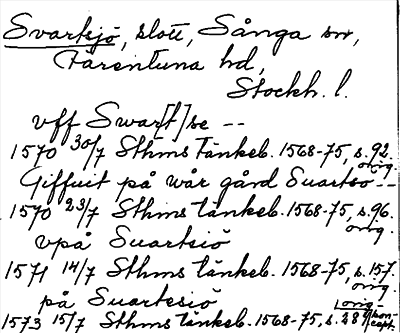 Svartsjö, slott, Sånga sn,
Färentuna hd,
Stockh. l.
vff Swar[t]se --
1570 30/7 Sthms tänkeb. 1568-75, s. 92.
orig.
Giffuit på wår gård Suartsö --
1570 23/7 Sthms tänkeb. 1568-75, s. 96.
orig.
vpå Suartsiö
1571 14/7 Sthms tänkeb. 1568-75, s. 157.
orig.
på Suartesiö
1573 15/7 Sthms tänkeb. 1568-75, s. 287